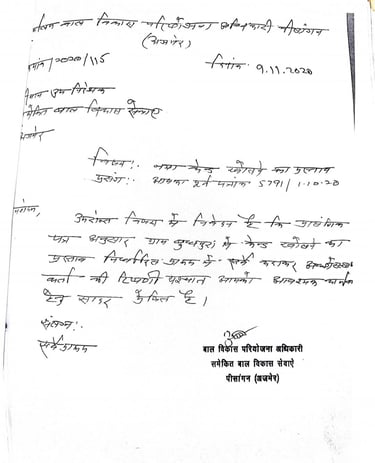 बाल विकास परियोजना अधिकारी पीसांगन
(अजमेर)
क्रमांक/2020/115 दिनांक 9.11.2020
उप निदेशक
समेकित बाल विकास सेवाएं
अजमेर
विषय:- नया केन्द्र खोलने का प्रस्ताव
प्रसंग:- आपका पूर्व पत्रांक 5791/1.10.20
महोदय,
उपरोक्त विषय में निवेदन है कि प्रासंगिक
पत्र अनुसार ग्राम में केन्द्र खोलने का
प्रस्ताव निर्धारित प्रपत्र में सर्वे कराकर
कर्ता की टिप्पणी पश्चात आपको आवश्यक
हेतु सादर प्रेषित है।
संलग्न:-
सर्वे प्रपत्र
बाल विकास परियोजना अधिकारी
समेकित बाल विकास सेवाऐं
पीसांगन (अजमेर)